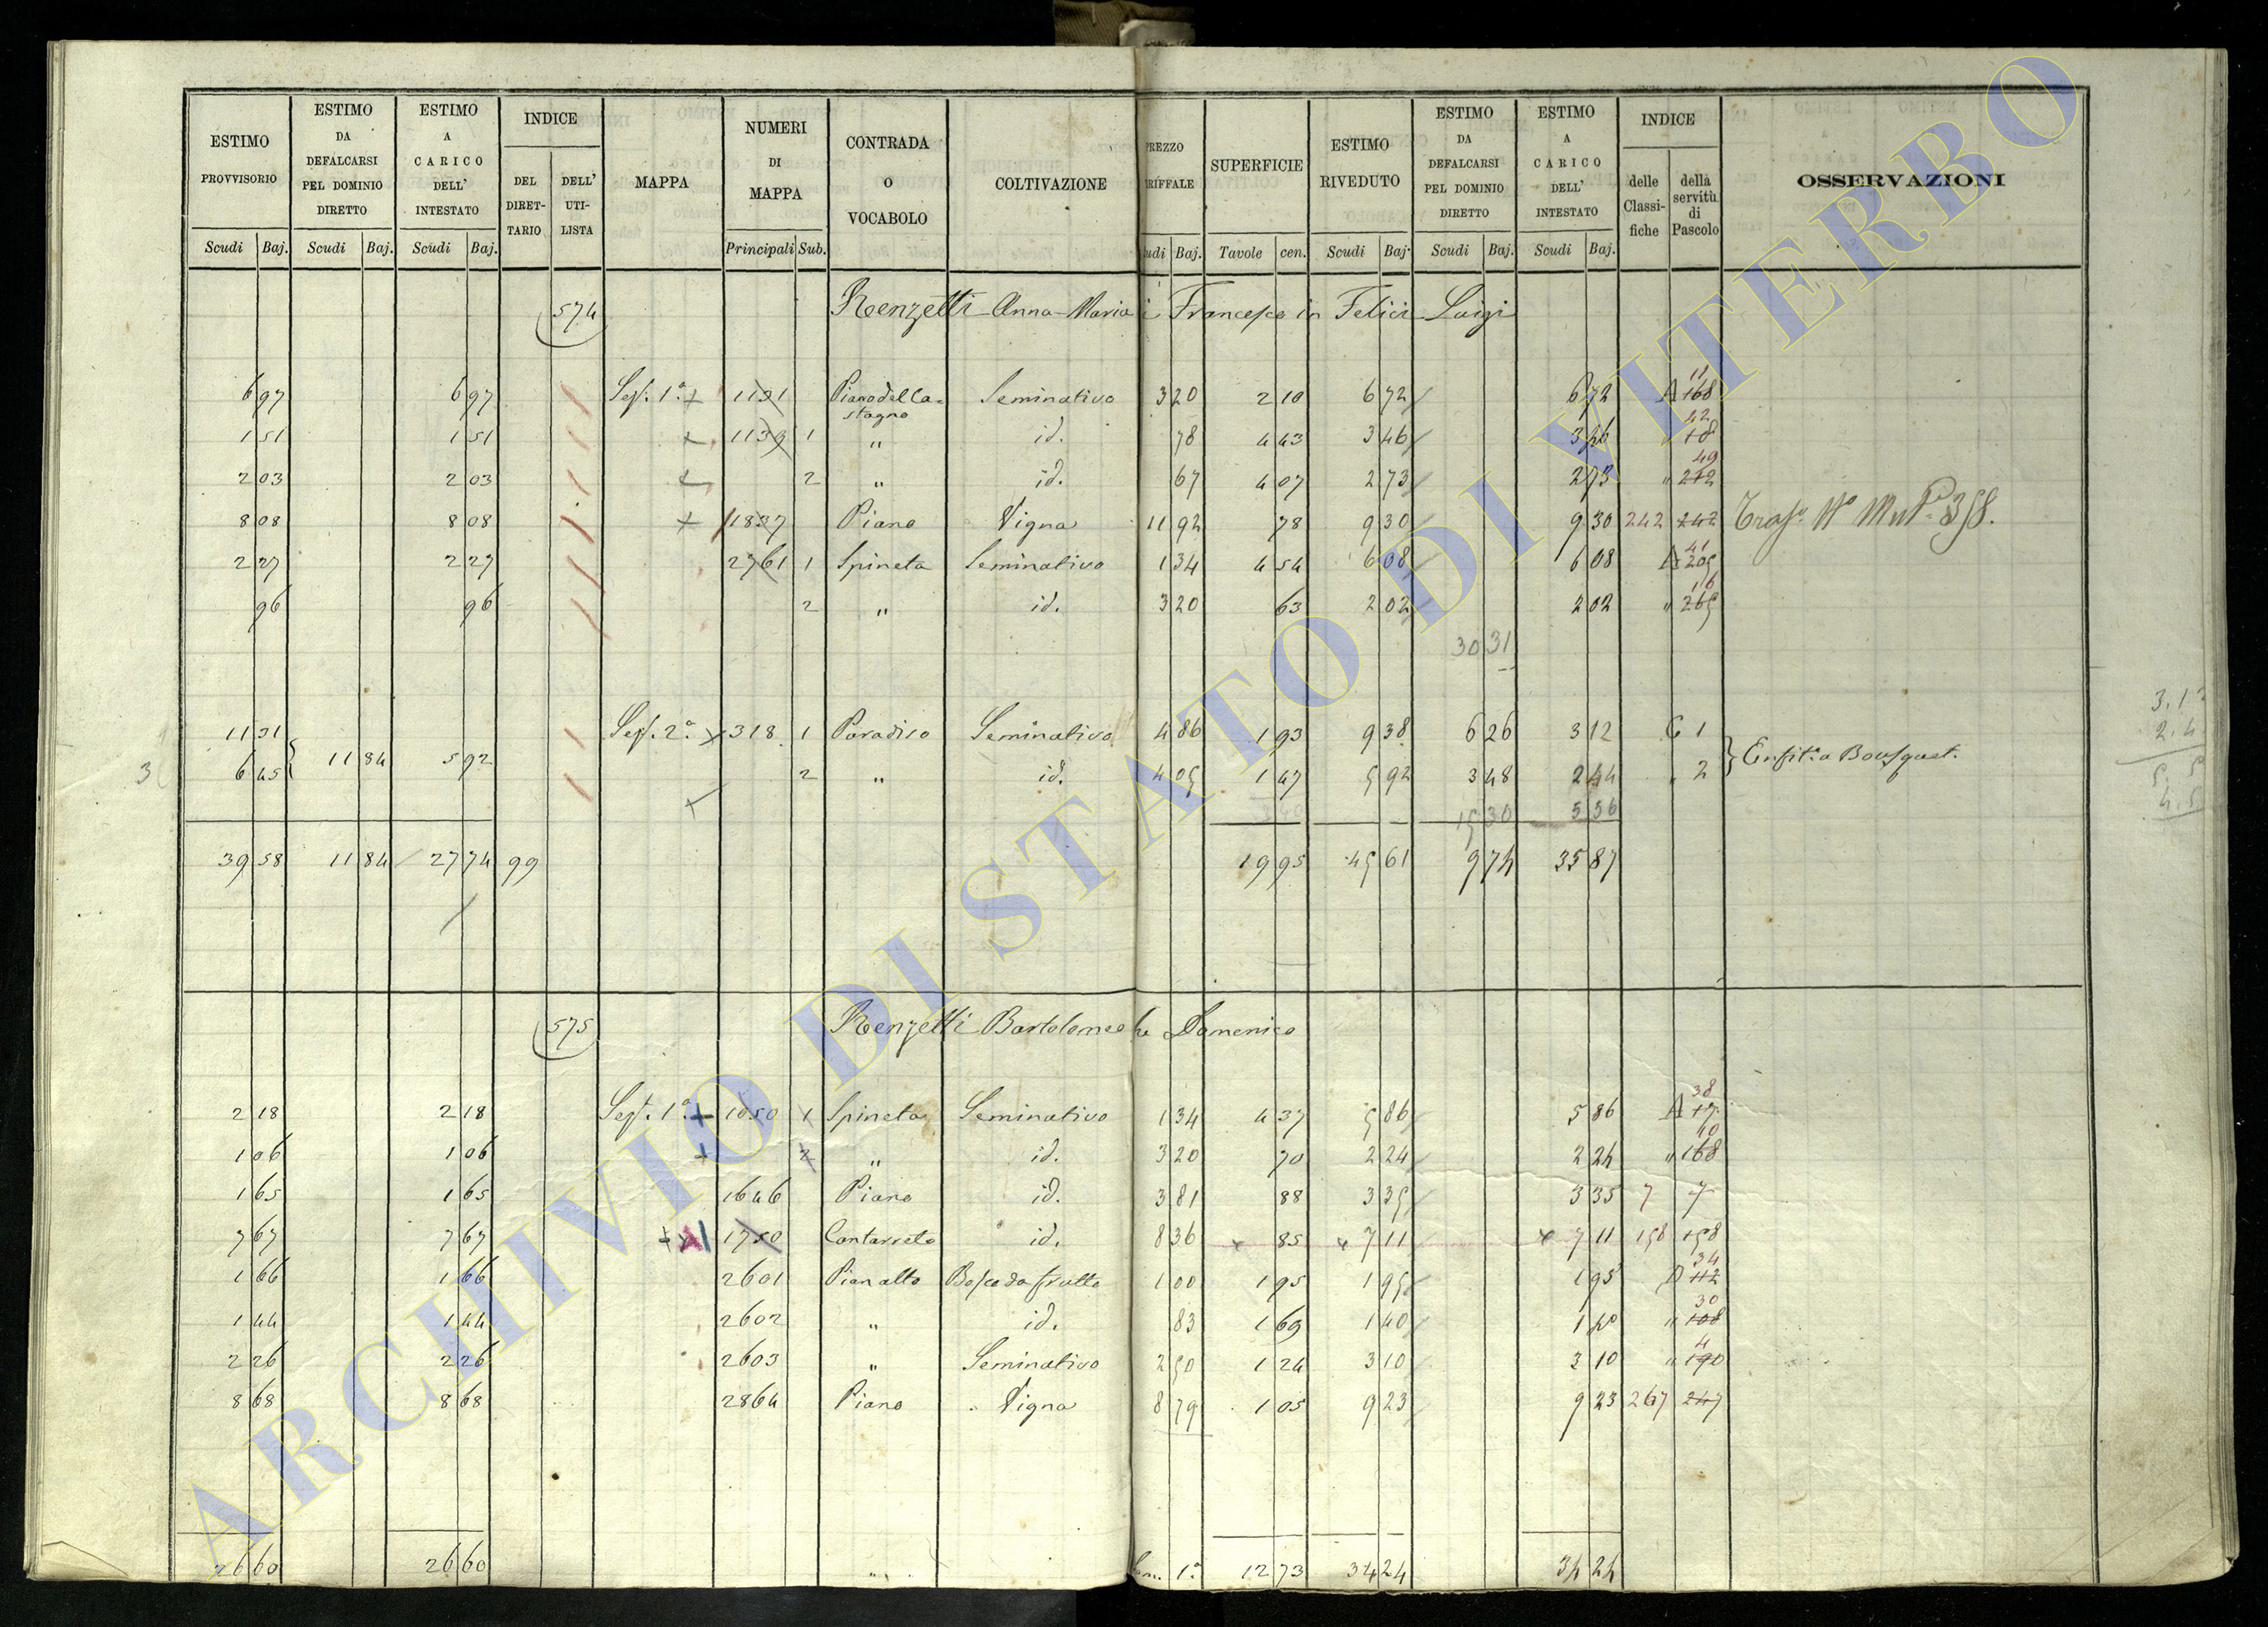 ESTIMO PROVVISORIO | ESTIMO DA DEFALCARSI PEL DOMINIO DIRETTO | ESTIMO A CARICO DELL' INTESTATO | INDICE DEL DIRET-TARIO | DELL' UTI-LISTA | MAPPA | NUMERI DI MAPPA | CONTRADA O VOCABOLO | COLTIVAZIONE | PREZZO | SUPERFICIE | ESTIMO RIVEDUTO | ESTIMO DA DEFALCARSI PEL DOMINIO DIRETTO | ESTIMO A CARICO DELL' INTESTATO | INDICE delle Classi-fiche | della servitù di Pascolo | OSSERVAZIONI
Scudi Baj. | Scudi Baj. | Scudi Baj. | Principali Sub. | Baj. | Tavole cen. | Scudi Baj. | Scudi Baj. | Scudi Baj.
574 Renzetti Anna Maria Francesco in Felici Luigi
6 97 | 6 97 | Sez. 1ª | 1131 | Piano del Ca=stagno | Seminativo | 3 20 | 2 10 | 6 72 | 6 72 | A 168 11
1 51 | 1 51 | 1139 | 1 | " | id. | 78 | 4 43 | 3 46 | 3 46 | 18 42
2 03 | 2 03 | 2 | " | id. | 67 | 4 07 | 2 73 | 2 73 | " 212 49
8 08 | 8 08 | 1837 | Piano | Vigna | 11 92 | 78 | 9 30 | 9 30 | 242 | 242 | 358.
2 27 | 2 27 | 2761 | 1 | Spineta | Seminativo | 1 34 | 4 54 | 6 08 | 6 08 | A 205 41
96 | 96 | 2 | " | id. | 3 20 | 63 | 2 02 | 2 02 | " 265 16
30 31
11 31 | Sez. 2ª | 318 | 1 | Paradiso | Seminativo | 4 86 | 1 93 | 9 38 | 6 26 | 3 12 | C 1
6 45 | 11 84 | 5 92 | 2 | " | id. | 4 05 | 1 47 | 5 92 | 3 48 | 2 44 | " 2 | Enfit.a Bousquet.
15 30 | 5 56
39 58 | 11 84 | 27 74 | 99 | 19 95 | 45 61 | 9 74 | 35 87
575 Renzetti Bartolomeo Domenico
2 18 | 2 18 | Sez. 1ª | 1050 | 1 | Spineta | Seminativo | 1 34 | 4 37 | 5 86 | 5 86 | A 17 38
1 06 | 1 06 | 2 | " | id. | 3 20 | 70 | 2 24 | 2 24 | " 168 10
1 65 | 1 65 | 1646 | Piano | id. | 3 81 | 88 | 3 35 | 3 35 | 7 | 7
7 67 | 7 67 | 1750 | Cantarreto | id. | 8 36 | 85 | 7 11 | 7 11 | 158 | 158
1 66 | 1 66 | 2601 | Pian alto | Bosco da frutto | 1 00 | 1 95 | 1 95 | 1 95 | 112 34
1 44 | 1 44 | 2602 | " | id. | 83 | 1 69 | 1 40 | 1 40 | " 108 30
2 26 | 2 26 | 2603 | " | Seminativo | 2 50 | 1 24 | 3 10 | 3 10 | " 190 4
8 68 | 8 68 | 2864 | Piano | Vigna | 8 79 | 1 05 | 9 23 | 9 23 | 267 | 247
26 60 | 26 60 | 1ª | 12 73 | 34 24 | 34 24
ARCHIVIO DI STATO DI VITERBO